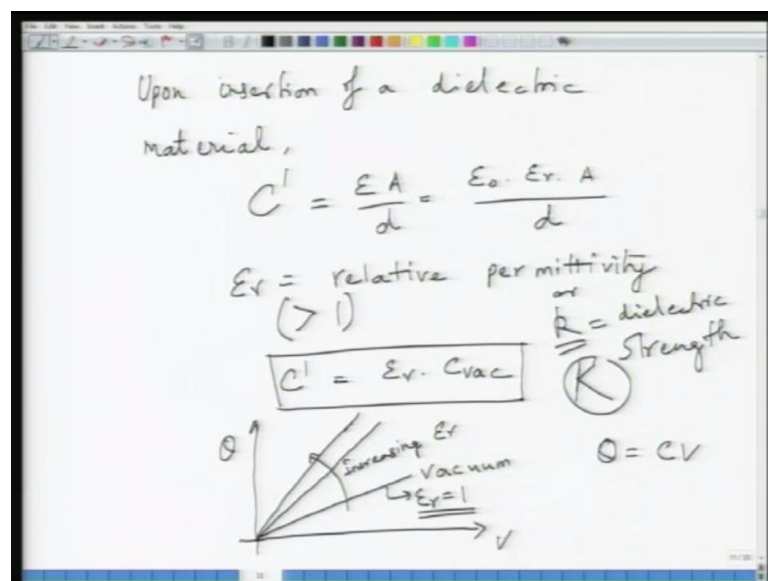 Upon insertion of a dielectric
material,
C' = εA/d = ε₀ · εr · A / d
εr = relative permittivity
(> 1)
or
k = dielectric
strength
C' = εr · Cvac
K
Q
increasing εr
vacuum
εr = 1
V
Q = CV